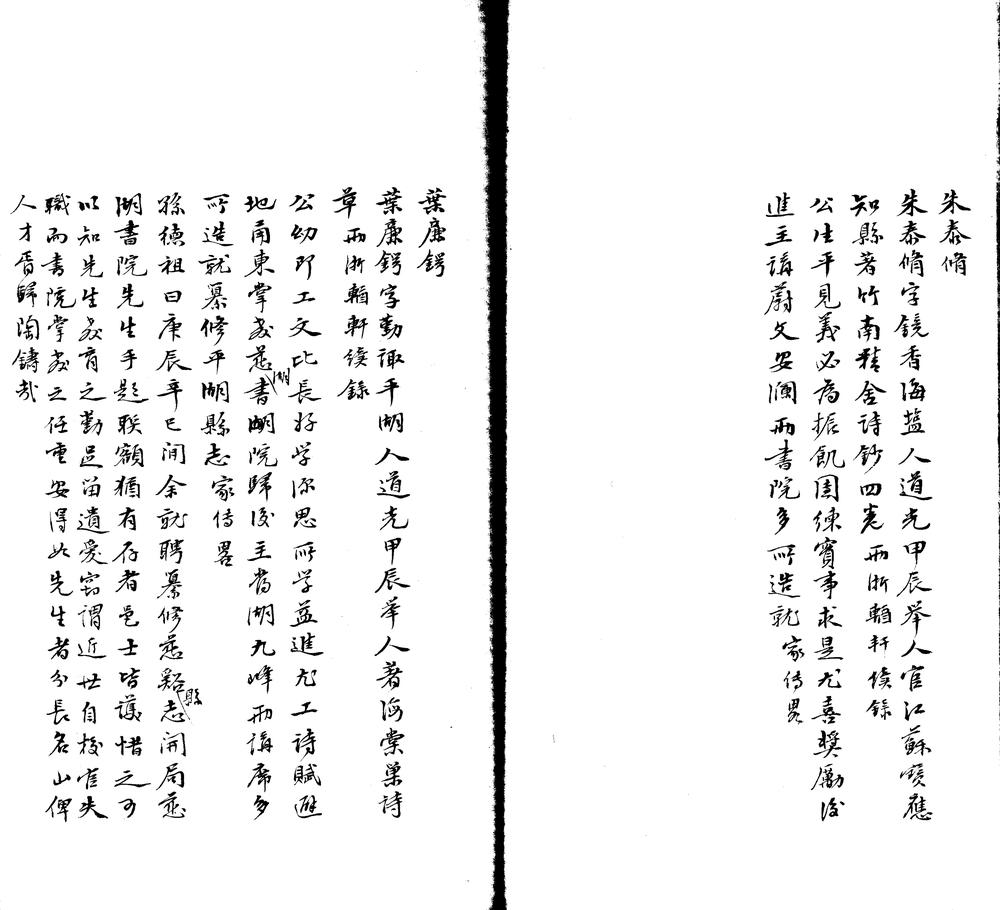 朱泰脩
朱泰脩字鏡香海鹽人道光甲辰舉人官江蘇寶應
知縣著竹南精舍詩鈔四卷兩浙輶軒續錄
公生平見義必為振飢團練實事求是尤喜獎勵後
進主講蔚文安瀾兩書院多所造就家傳畧
葉廉鍔
葉廉鍔字勤諏平湖人道光甲辰舉人著海棠巢詩
草兩浙輶軒續錄
公幼即工文比長好学深思所学益進尤工詩賦避
地甬東掌教慈湖書湖院歸後主當湖九峰兩講席多
所造就纂修平湖縣志家傳畧
孫德祖曰庚辰辛巳間余就聘纂修慈谿縣志開局慈
湖書院先生手題聯額猶有存者邑士皆護惜之可
以知先生教育之勤足留遺愛竊謂近世自校官失
職而書院掌教之任重安得如先生者分長名山俾
人才胥歸陶鑄哉